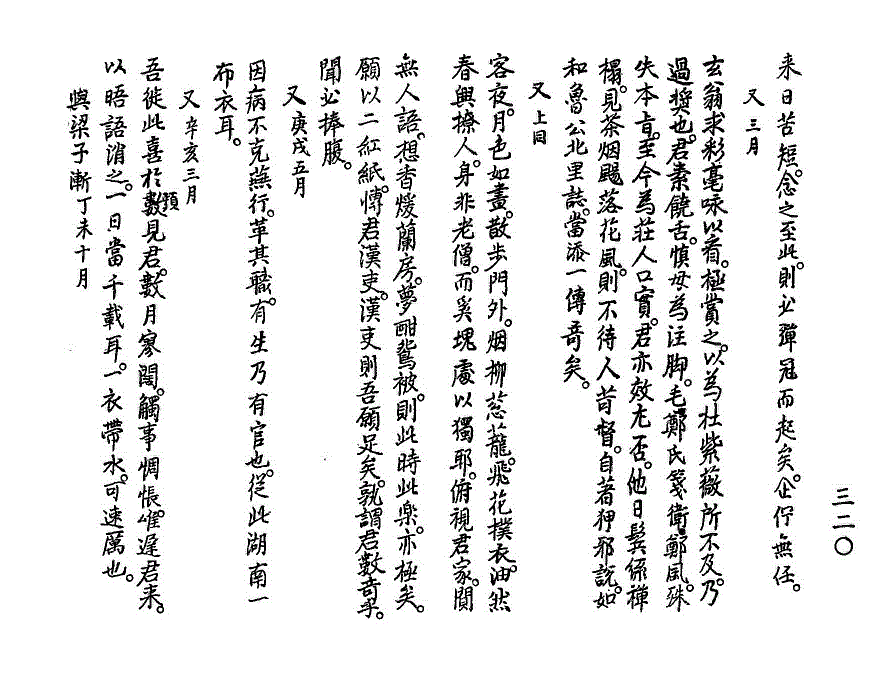 三二〇
来日苦短。念之至此。則必彈冠而起矣。企佇無任。
又 三月
玄翁求彩毫咏以看。極賞之。以為杜紫薇所不及。乃
過奬也。君素饒舌。慎毋為注脚。毛鄭氏箋衛鄭風。殊
失本旨。至今為荘人口實。君亦效尤否。他日鬂係禅
榻。見茶烟颺落花風。則不待人苛督。自著狎邪説。如
和魯公北里誌。當添一傳奇矣。
又 上同
客夜。月色如晝。散歩門外。烟柳葱蘢。飛花撲衣。油然
春興撩人。身非老僧。而奚塊處以獨耶。俯視君家。閴
無人語。想香煖蘭房。夢酣鴛被。則此時此楽。亦極矣。
願以二紅紙。慱君漢吏。漢吏則吾願足矣。孰謂君數奇乎。
聞必捧腹。
又 庚戌五月
因病不克蕪行。革其職。有生乃有官也。従此湖南一
布衣耳。
又 辛亥三月
吾徙此喜於數預見君。數月寥闊。觸事惆悵。唯遅君来。
以晤語消之。一日當千載耳。一衣帶水。可速厲也。
與梁子漸 丁未十月